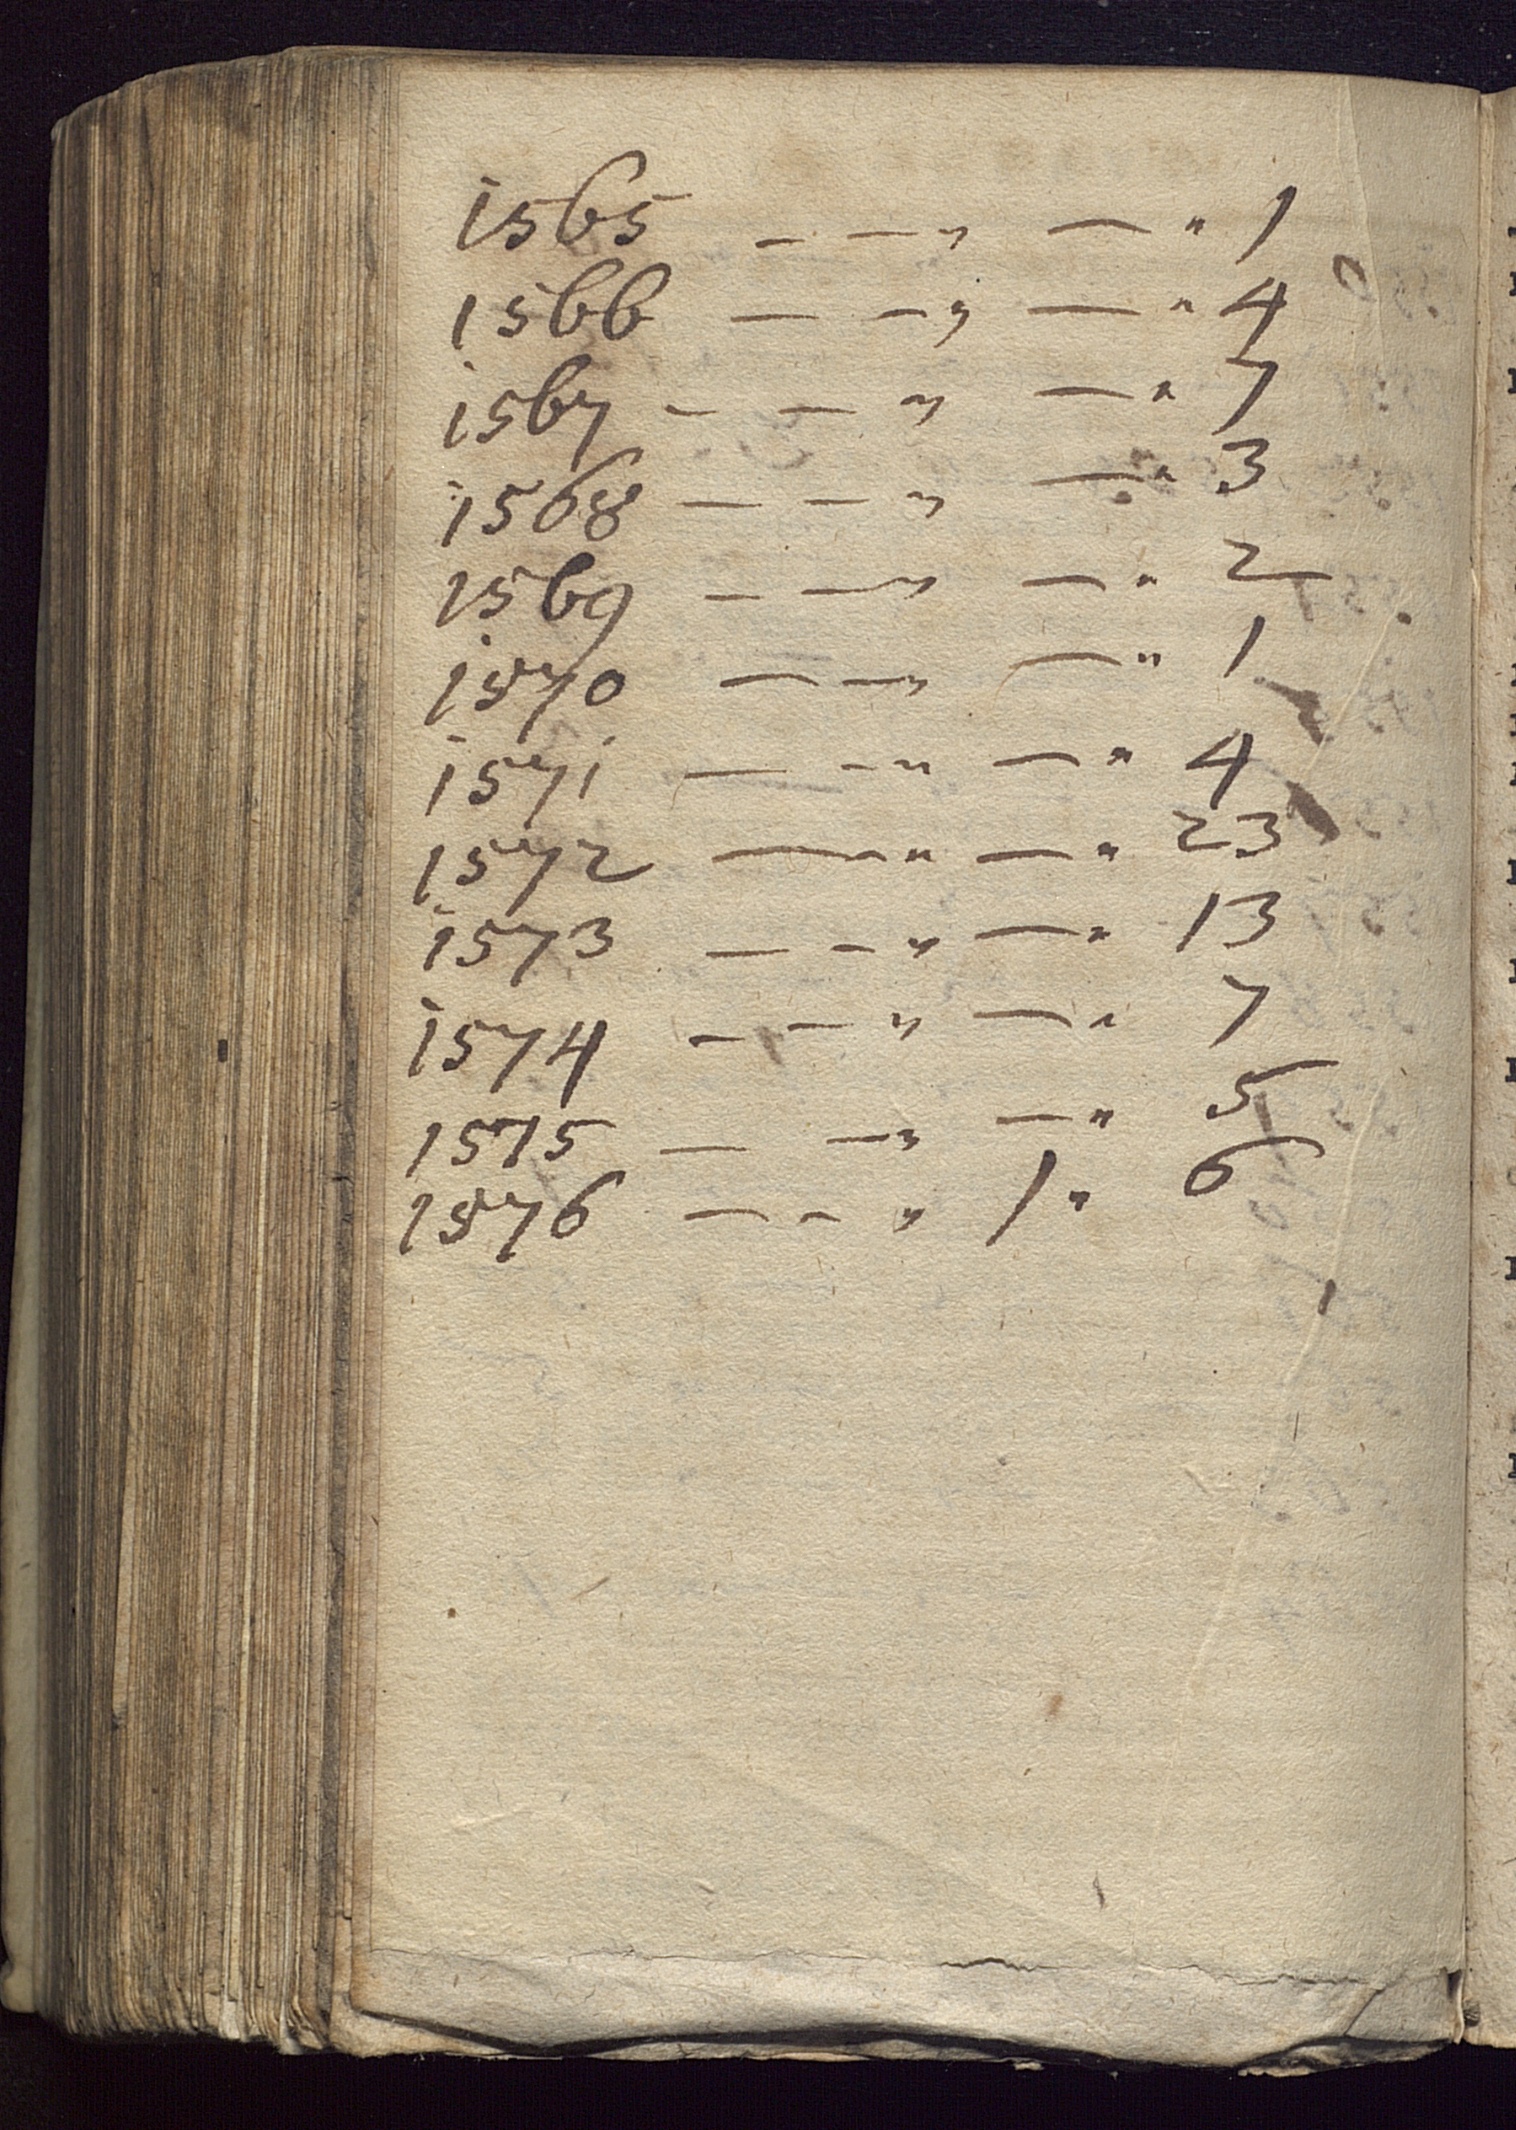 1565 — — „ — „ 1
1566 — — „ — „ 4
1567 — — „ — „ 7
1568 — — „ — „ 3
1569 — — „ — „ 2
1570 — — „ — „ 1
1571 — — „ — „ 4
1572 — — „ — „ 23
1573 — — „ — „ 13
1574 — — „ — „ 7
1575 — — „ — „ 5
1576 — — „ 1 „ 6